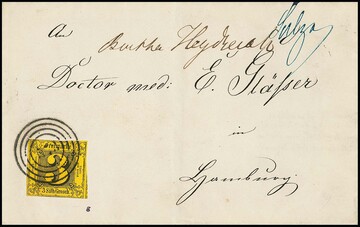 An
Bertha Heydreich
Sulza
Doctor med: E. Gläſser
in
Hamburg.
3 Silb. Grosch.